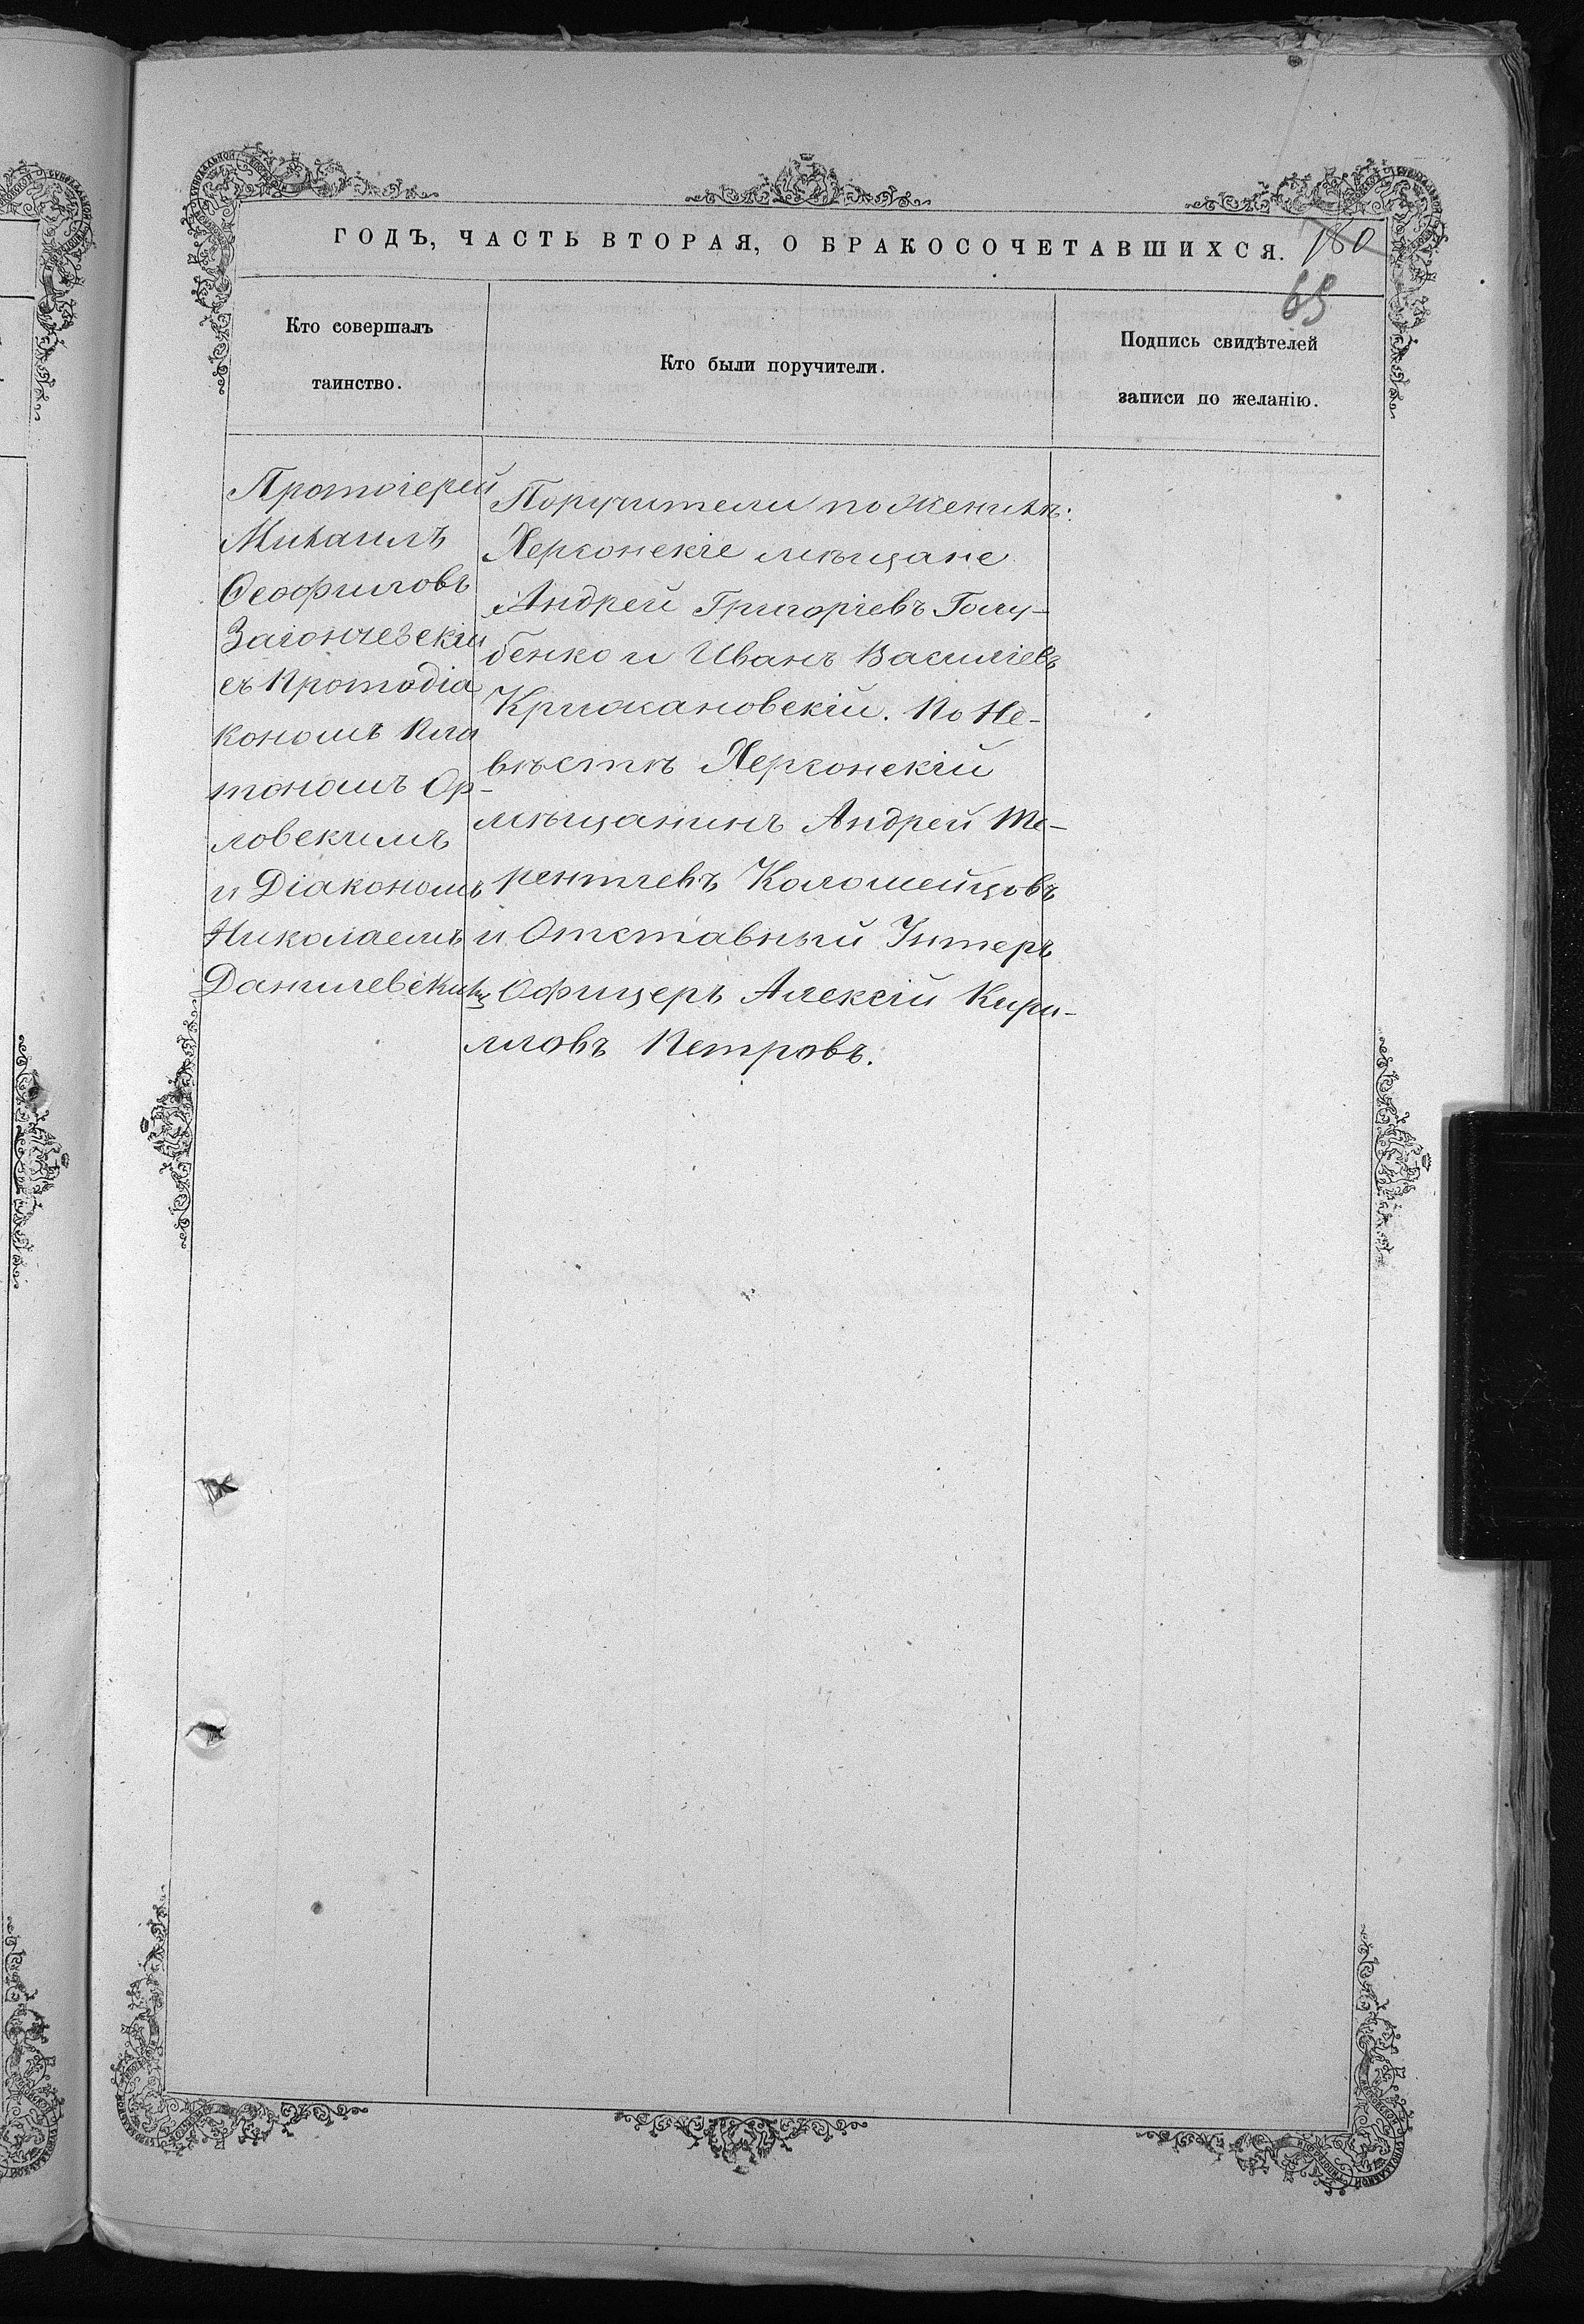 ГОДЪ, ЧАСТЬ ВТОРАЯ, О БРАКОСОЧЕТАВШИХСЯ. 180
65
Кто совершалъ
таинство.
Кто были поручители.
Подпись свидѣтелей
записи по желанію.
Протоіерей
Михаилъ
Ѳеофиловъ
Загончевскій
съ Протодіа
кономъ Пла
тономъ Ор-
ловскимъ
и Діакономъ
Николаемъ
Данилевским
Поручители по Женихѣ:
Херсонскіе мѣщане
Андрей Григоріевъ Голу-
бенко и Иванъ Василіевъ
Крижановскій. По Не-
вѣстѣ Херсонскій
мѣщанинъ Андрей Те-
рентіевъ Коломейцовъ
и Отставный Унтеръ
Офицеръ Алексій Кири-
лловъ Петровъ.